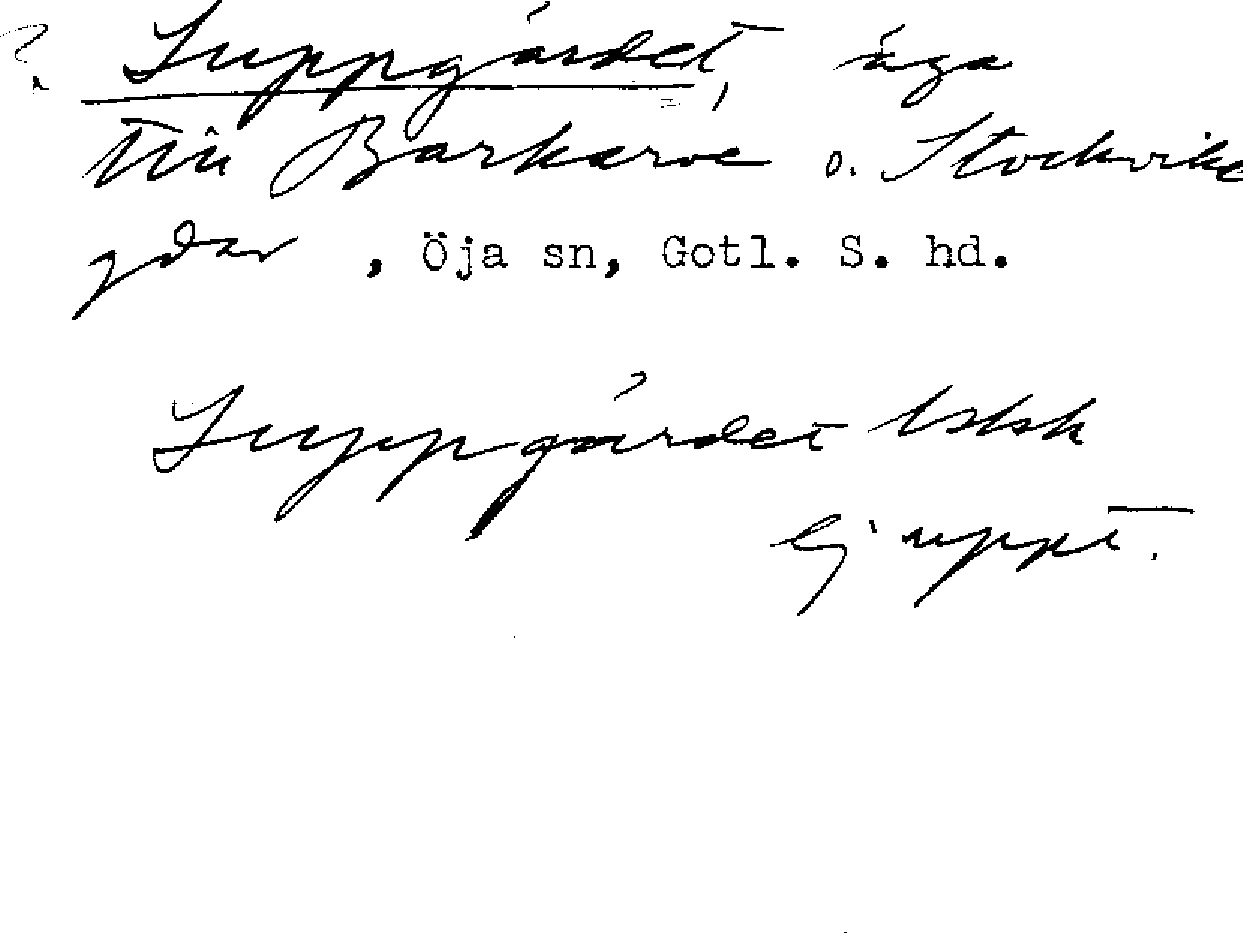 ? Luppgärdet, äga
till Barkarve o. Stockvike
gdar , Öja sn, Gotl. S. hd.
Luppgärdet
ej uppt.